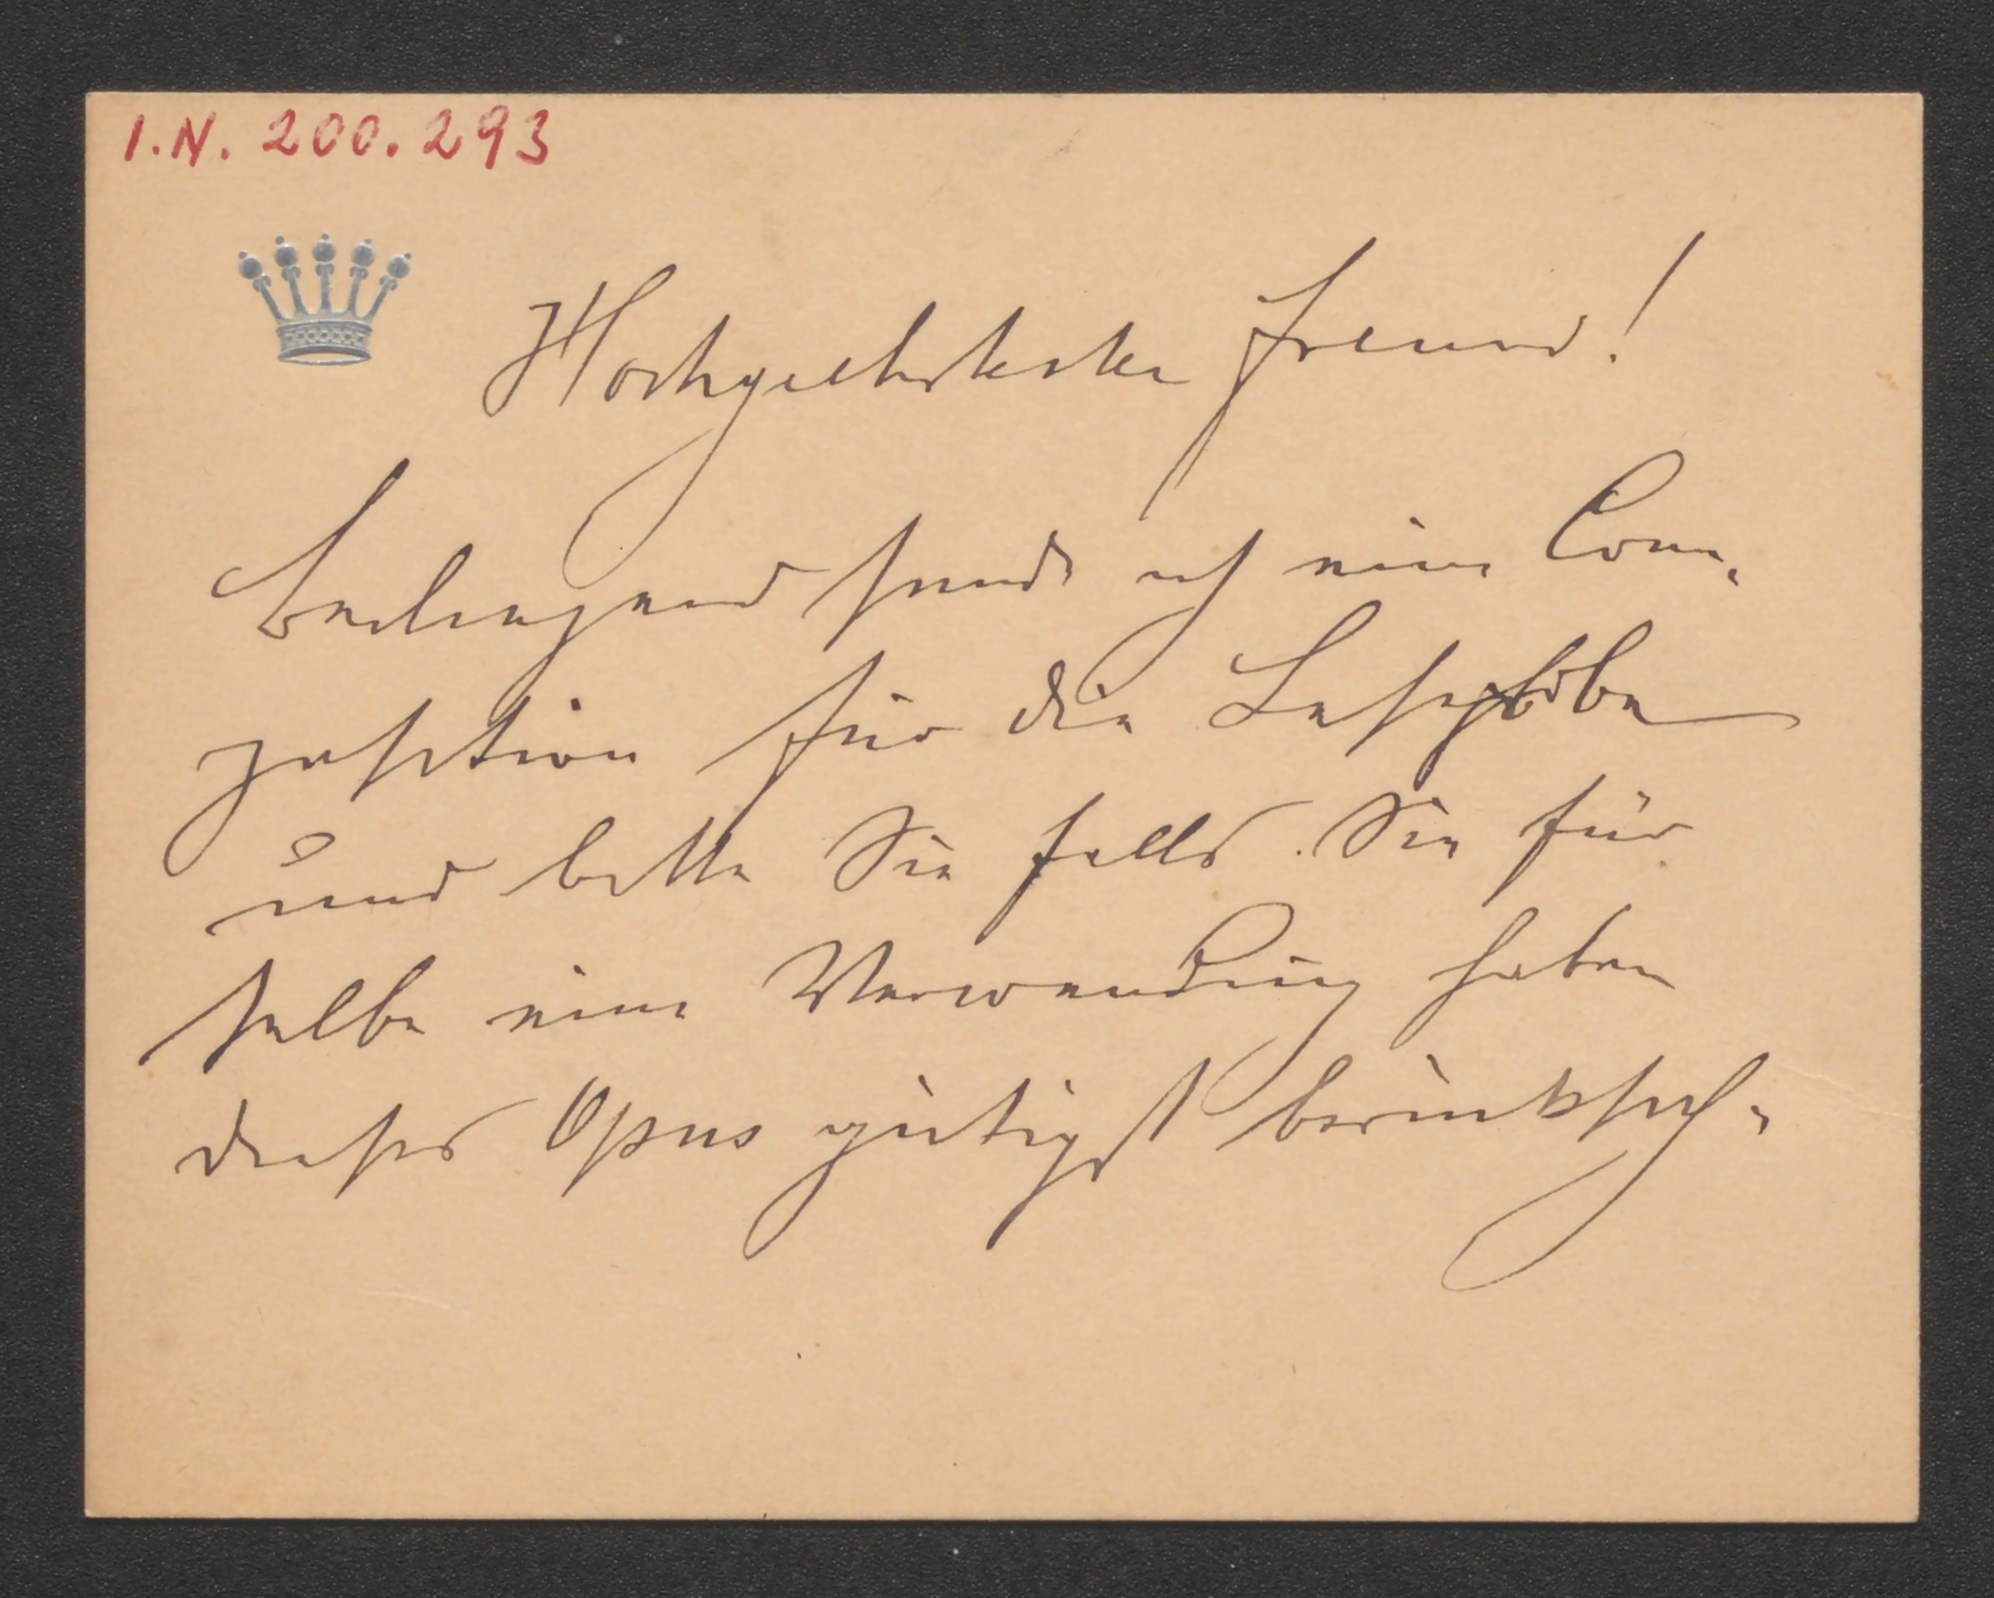 I.N. 200.293
Hochgeehrtester Freund!
Beiliegend sende ich eine Com-
position für die Leseprobe
und bitte Sie falls Sie für
selbe eine Verwendung haben
dieses Opus gütigst berücksich-